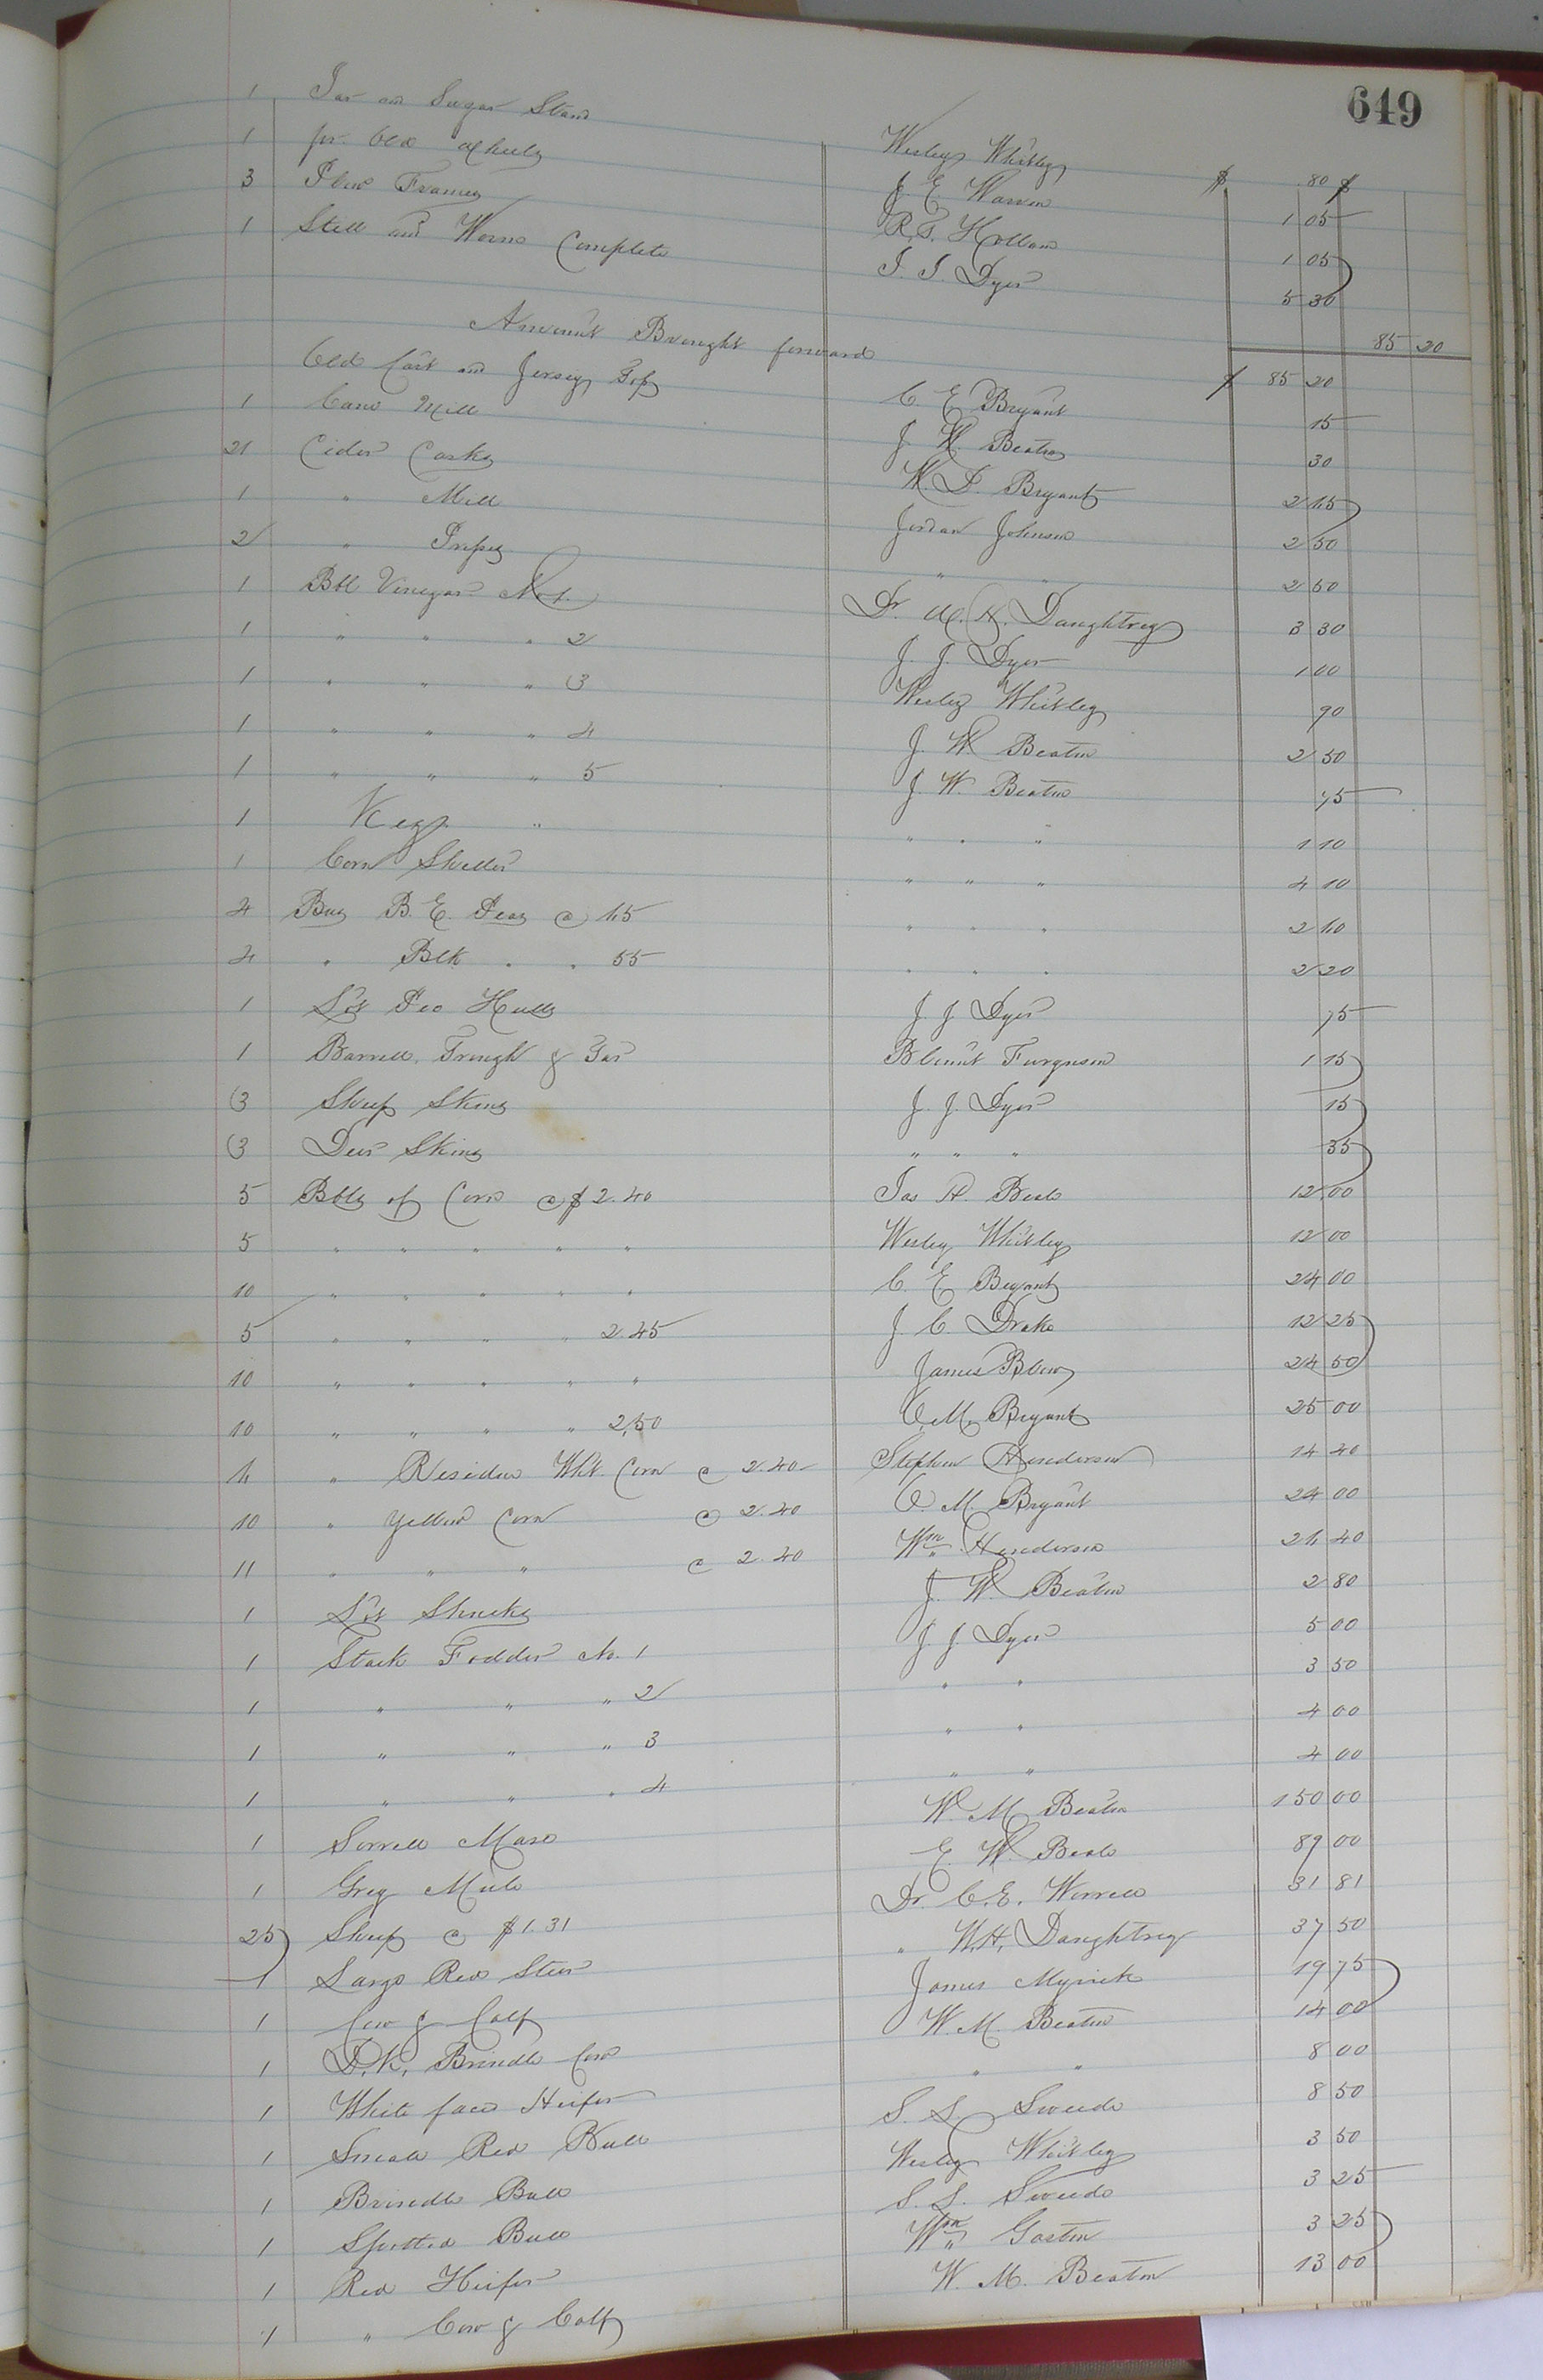 649
1 Jar and Sugar Stand Wesley Whitley $ .80 $
1 pr. Old Wheels J. E. Warren 1 05
3 Plow Frames R. S. Holland 1 05
1 Still and Worm Complete J. J. Dyer 5 30 85 20
Amount Brought forward $ 85 20
Old Cart and Jersey Top C. E. Bryant 15
1 Cane Mill J. W. Beaton 30
21 Cider Casks W. D. Bryant 2 15
1 " Mill Jordan Johnson 2 50
2 " Presses " " 2 50
1 Bbl Vinegar No 1. Dr. W. H. Daughtrey 3 30
1 " " " 2 J. J. Dyer 1 00
1 " " " 3 Wesley Whitley 90
1 " " " 4 J. W. Beaton 2 50
1 " " " 5 J. W. Beaton 75
1 Keg " " " " 1 10
1 Corn Sheller " " " 4 10
4 Bus B. E. Peas @ " " " 2 10
4 " Blk " " 55 " " " 2 20
1 Lot Pea Hulls J. J. Dyer 75
1 Barrell, Trough & Tar Blount Furguson 1 15
3 Sheep Skins J. J. Dyer 15
3 Deer Skins " " " 35
5 Bbls of Corn @ $2.40 Jas H. Beale 12 00
5 " " " " " Wesley Whitley 12 00
10 " " " " " C. E. Bryant 24 00
5 " " " " 2.45 J. C. Drake 12 25
10 " " " " " James Blow 24 50
10 " " " " 2,50 O. M. Bryant 25 00
6 " Residue Wht. Corn @ 2.40 Stephen Henderson 14 40
10 " Yellow Corn @ 2.40 O. M. Bryant 24 00
11 " " " @ 2.40 Wm Henderson 26 40
1 Lot Shucks J. W. Beaton 2 80
1 Stack Fodder No. 1 J J Dyer 5 00
1 " " " 2 " " 3 50
1 " " " 3 " " 4 00
1 " " " 4 " " 4 00
1 Sorrell Mare W. M. Beaton 150 00
1 Grey Mule E. W. Beale 89 00
25 Sheep @ $1.31 Dr. C. E. Worrell 31 81
1 Large Red Steer " W. H. Daughtrey 37 50
1 Cow & Calf James Myrick 19 75
1 D. K. Brindle Cow W. M. Beaton 14 00
1 White face Heifer " " 8 00
1 Small Red Bull S. S. 8 50
1 Brindle Bull Wesley Whitley 3 50
1 Spotted Bull S. S. 3 25
1 Red Heifer Wm Gaston 3 25
1 " Cow & Calf W. M. Beaton 13 00